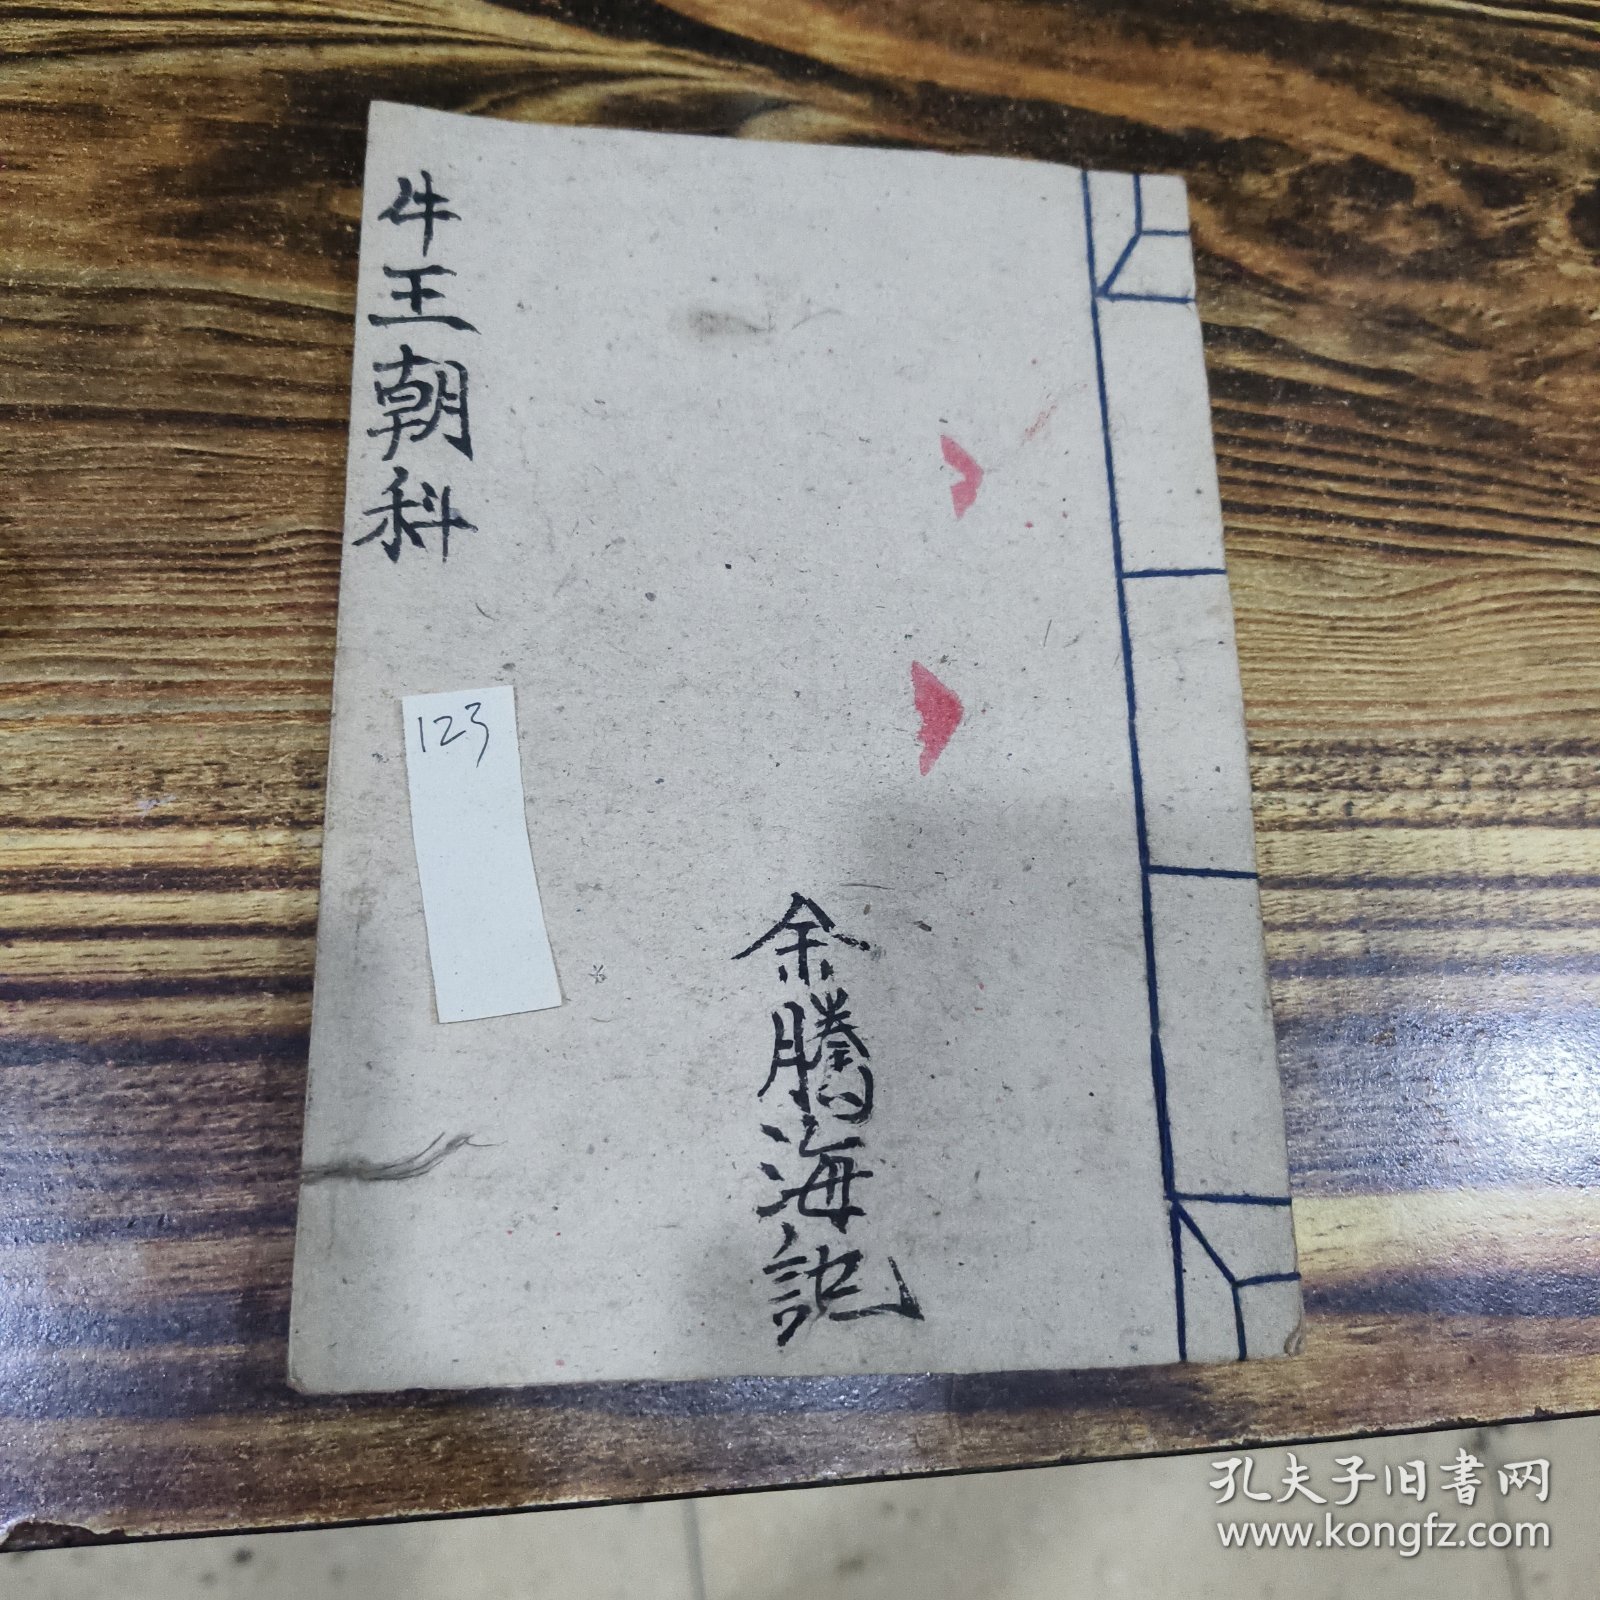 牛王朝科
123
余騰海記
孔夫子旧书网
www.kongfz.com